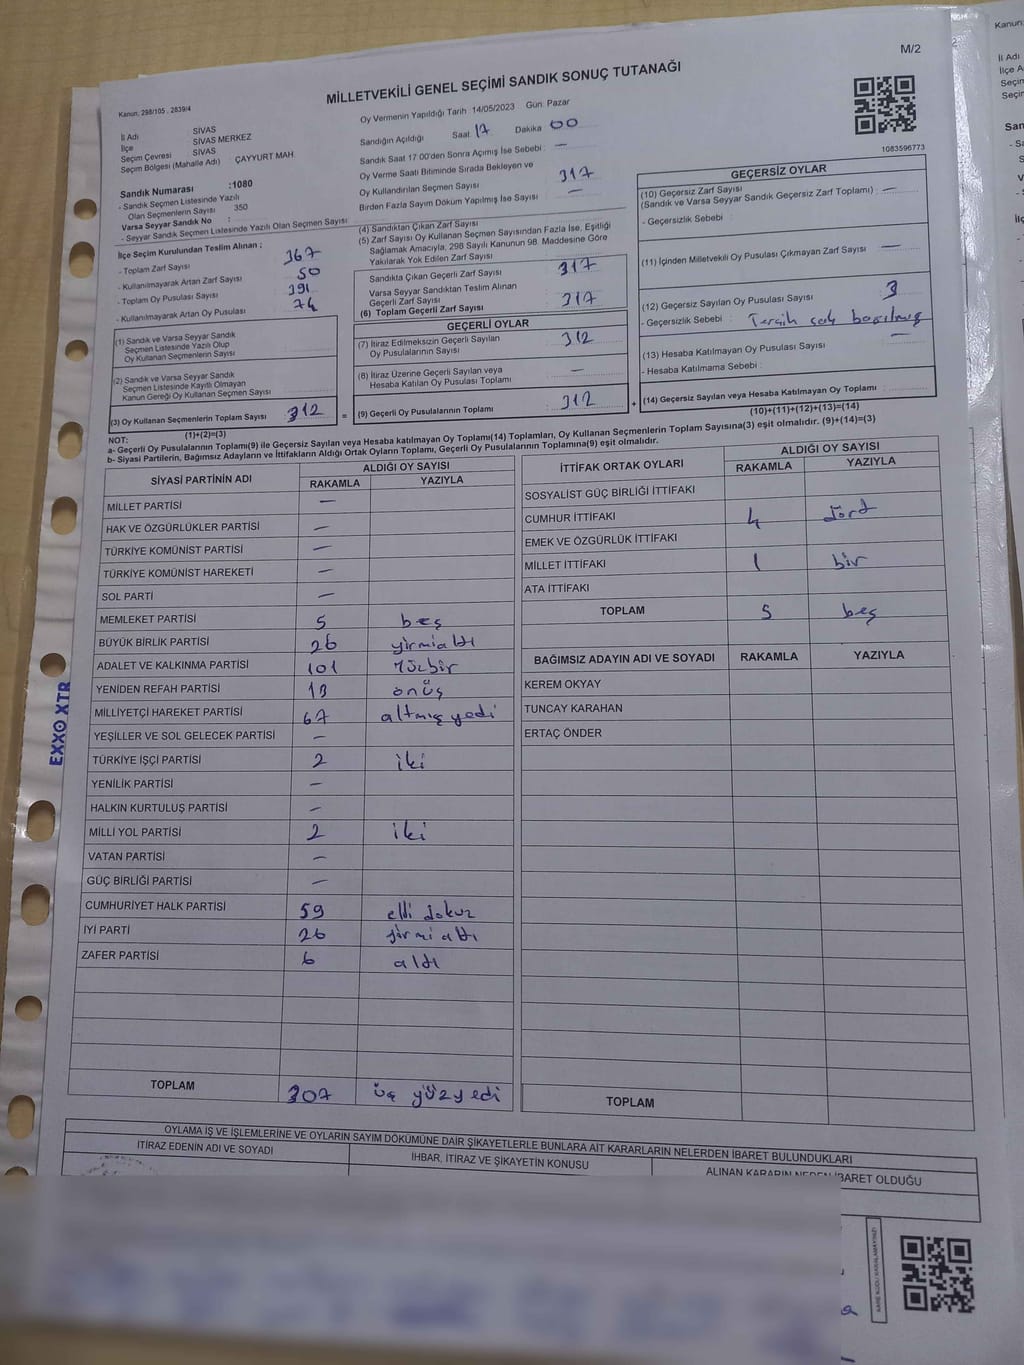 M/2
MİLLETVEKİLİ GENEL SEÇİMİ SANDIK SONUÇ TUTANAĞI
Kanun, 298/105 , 2839/4
İl Adı : SİVAS
İlçe : SİVAS MERKEZ
Seçim Çevresi : SİVAS
Seçim Bölgesi (Mahalle Adı) : ÇAYYURT MAH
Sandık Numarası :1080
- Sandık Seçmen Listesinde Yazılı
Olan Seçmenlerin Sayısı : 350
Varsa Seyyar Sandık No :
- Seyyar Sandık Seçmen Listesinde Yazılı Olan Seçmen Sayısı
İlçe Seçim Kurulundan Teslim Alınan ;
- Toplam Zarf Sayısı 367
- Kullanılmayarak Artan Zarf Sayısı 50
- Toplam Oy Pusulası Sayısı 391
- Kullanılmayarak Artan Oy Pusulası 74
(1) Sandık ve Varsa Seyyar Sandık
Seçmen Listesinde Yazılı Olup
Oy Kullanan Seçmenlerin Sayısı
(2) Sandık ve Varsa Seyyar Sandık
Seçmen Listesinde Kayıtlı Olmayan
Kanun Gereği Oy Kullanan Seçmen Sayısı
(3) Oy Kullanan Seçmenlerin Toplam Sayısı 312
(1)+(2)=(3)
Oy Vermenin Yapıldığı Tarih 14/05/2023 Gün: Pazar
Sandığın Açıldığı Saat 17 Dakika 00
Sandık Saat 17:00'den Sonra Açımış İse Sebebi : —
Oy Verme Saati Bitiminde Sırada Bekleyen ve
Oy Kullandırılan Seçmen Sayısı 317
Birden Fazla Sayım Döküm Yapılmış İse Sayısı —
(4) Sandıktan Çıkan Zarf Sayısı
(5) Zarf Sayısı Oy Kullanan Seçmen Sayısından Fazla İse, Eşitliği
Sağlamak Amacıyla, 298 Sayılı Kanunun 98. Maddesine Göre
Yakılarak Yok Edilen Zarf Sayısı
Sandıkta Çıkan Geçerli Zarf Sayısı 317
Varsa Seyyar Sandıktan Teslim Alınan
Geçerli Zarf Sayısı
(6) Toplam Geçerli Zarf Sayısı 317
GEÇERLİ OYLAR
(7) İtiraz Edilmeksizin Geçerli Sayılan
Oy Pusulalarının Sayısı 312
(8) İtiraz Üzerine Geçerli Sayılan veya
Hesaba Katılan Oy Pusulası Toplamı —
= (9) Geçerli Oy Pusulalarının Toplamı 312 +
1083596773
GEÇERSİZ OYLAR
(10) Geçersiz Zarf Sayısı
(Sandık ve Varsa Seyyar Sandık Geçersiz Zarf Toplamı) : —
- Geçersizlik Sebebi :
(11) İçinden Milletvekili Oy Pusulası Çıkmayan Zarf Sayısı —
(12) Geçersiz Sayılan Oy Pusulası Sayısı 3
- Geçersizlik Sebebi : Tercih çok basılmış
(13) Hesaba Katılmayan Oy Pusulası Sayısı —
- Hesaba Katılmama Sebebi :
(14) Geçersiz Sayılan veya Hesaba Katılmayan Oy Toplamı :
(10)+(11)+(12)+(13)=(14)
NOT:
a- Geçerli Oy Pusulalarının Toplamı(9) ile Geçersiz Sayılan veya Hesaba katılmayan Oy Toplamı(14) Toplamları, Oy Kullanan Seçmenlerin Toplam Sayısına(3) eşit olmalıdır. (9)+(14)=(3)
b- Siyasi Partilerin, Bağımsız Adayların ve İttifakların Aldığı Ortak Oyların Toplamı, Geçerli Oy Pusulalarının Toplamına(9) eşit olmalıdır.
SİYASİ PARTİNİN ADI ALDIĞI OY SAYISI
RAKAMLA YAZIYLA
MİLLET PARTİSİ —
HAK VE ÖZGÜRLÜKLER PARTİSİ —
TÜRKİYE KOMÜNİST PARTİSİ —
TÜRKİYE KOMÜNİST HAREKETİ —
SOL PARTİ —
MEMLEKET PARTİSİ 5 beş
BÜYÜK BİRLİK PARTİSİ 26 yirmialtı
ADALET VE KALKINMA PARTİSİ 101 Yüzbir
YENİDEN REFAH PARTİSİ 13 onüç
MİLLİYETÇİ HAREKET PARTİSİ 67 altmış yedi
YEŞİLLER VE SOL GELECEK PARTİSİ —
TÜRKİYE İŞÇİ PARTİSİ 2 iki
YENİLİK PARTİSİ —
HALKIN KURTULUŞ PARTİSİ —
MİLLİ YOL PARTİSİ 2 iki
VATAN PARTİSİ —
GÜÇ BİRLİĞİ PARTİSİ —
CUMHURİYET HALK PARTİSİ 59 elli dokuz
İYİ PARTİ 26 yirmi altı
ZAFER PARTİSİ 6 altı
TOPLAM 307 üç yüzyedi
İTTİFAK ORTAK OYLARI ALDIĞI OY SAYISI
RAKAMLA YAZIYLA
SOSYALİST GÜÇ BİRLİĞİ İTTİFAKI
CUMHUR İTTİFAKI 4 dört
EMEK VE ÖZGÜRLÜK İTTİFAKI
MİLLET İTTİFAKI 1 bir
ATA İTTİFAKI
TOPLAM 5 beş
BAĞIMSIZ ADAYIN ADI VE SOYADI RAKAMLA YAZIYLA
KEREM OKYAY
TUNCAY KARAHAN
ERTAÇ ÖNDER
TOPLAM
OYLAMA İŞ VE İŞLEMLERİNE VE OYLARIN SAYIM DÖKÜMÜNE DAİR ŞİKAYETLERLE BUNLARA AİT KARARLARIN NELERDEN İBARET BULUNDUKLARI
İTİRAZ EDENİN ADI VE SOYADI İHBAR, İTİRAZ VE ŞİKAYETİN KONUSU ALINAN KARARIN NEDEN İBARET OLDUĞU
KARE KODU KARALAMAYINIZ!
EXXO XTR
Kanun:
İl Adı
İlçe A
Seçim
Seçim
San